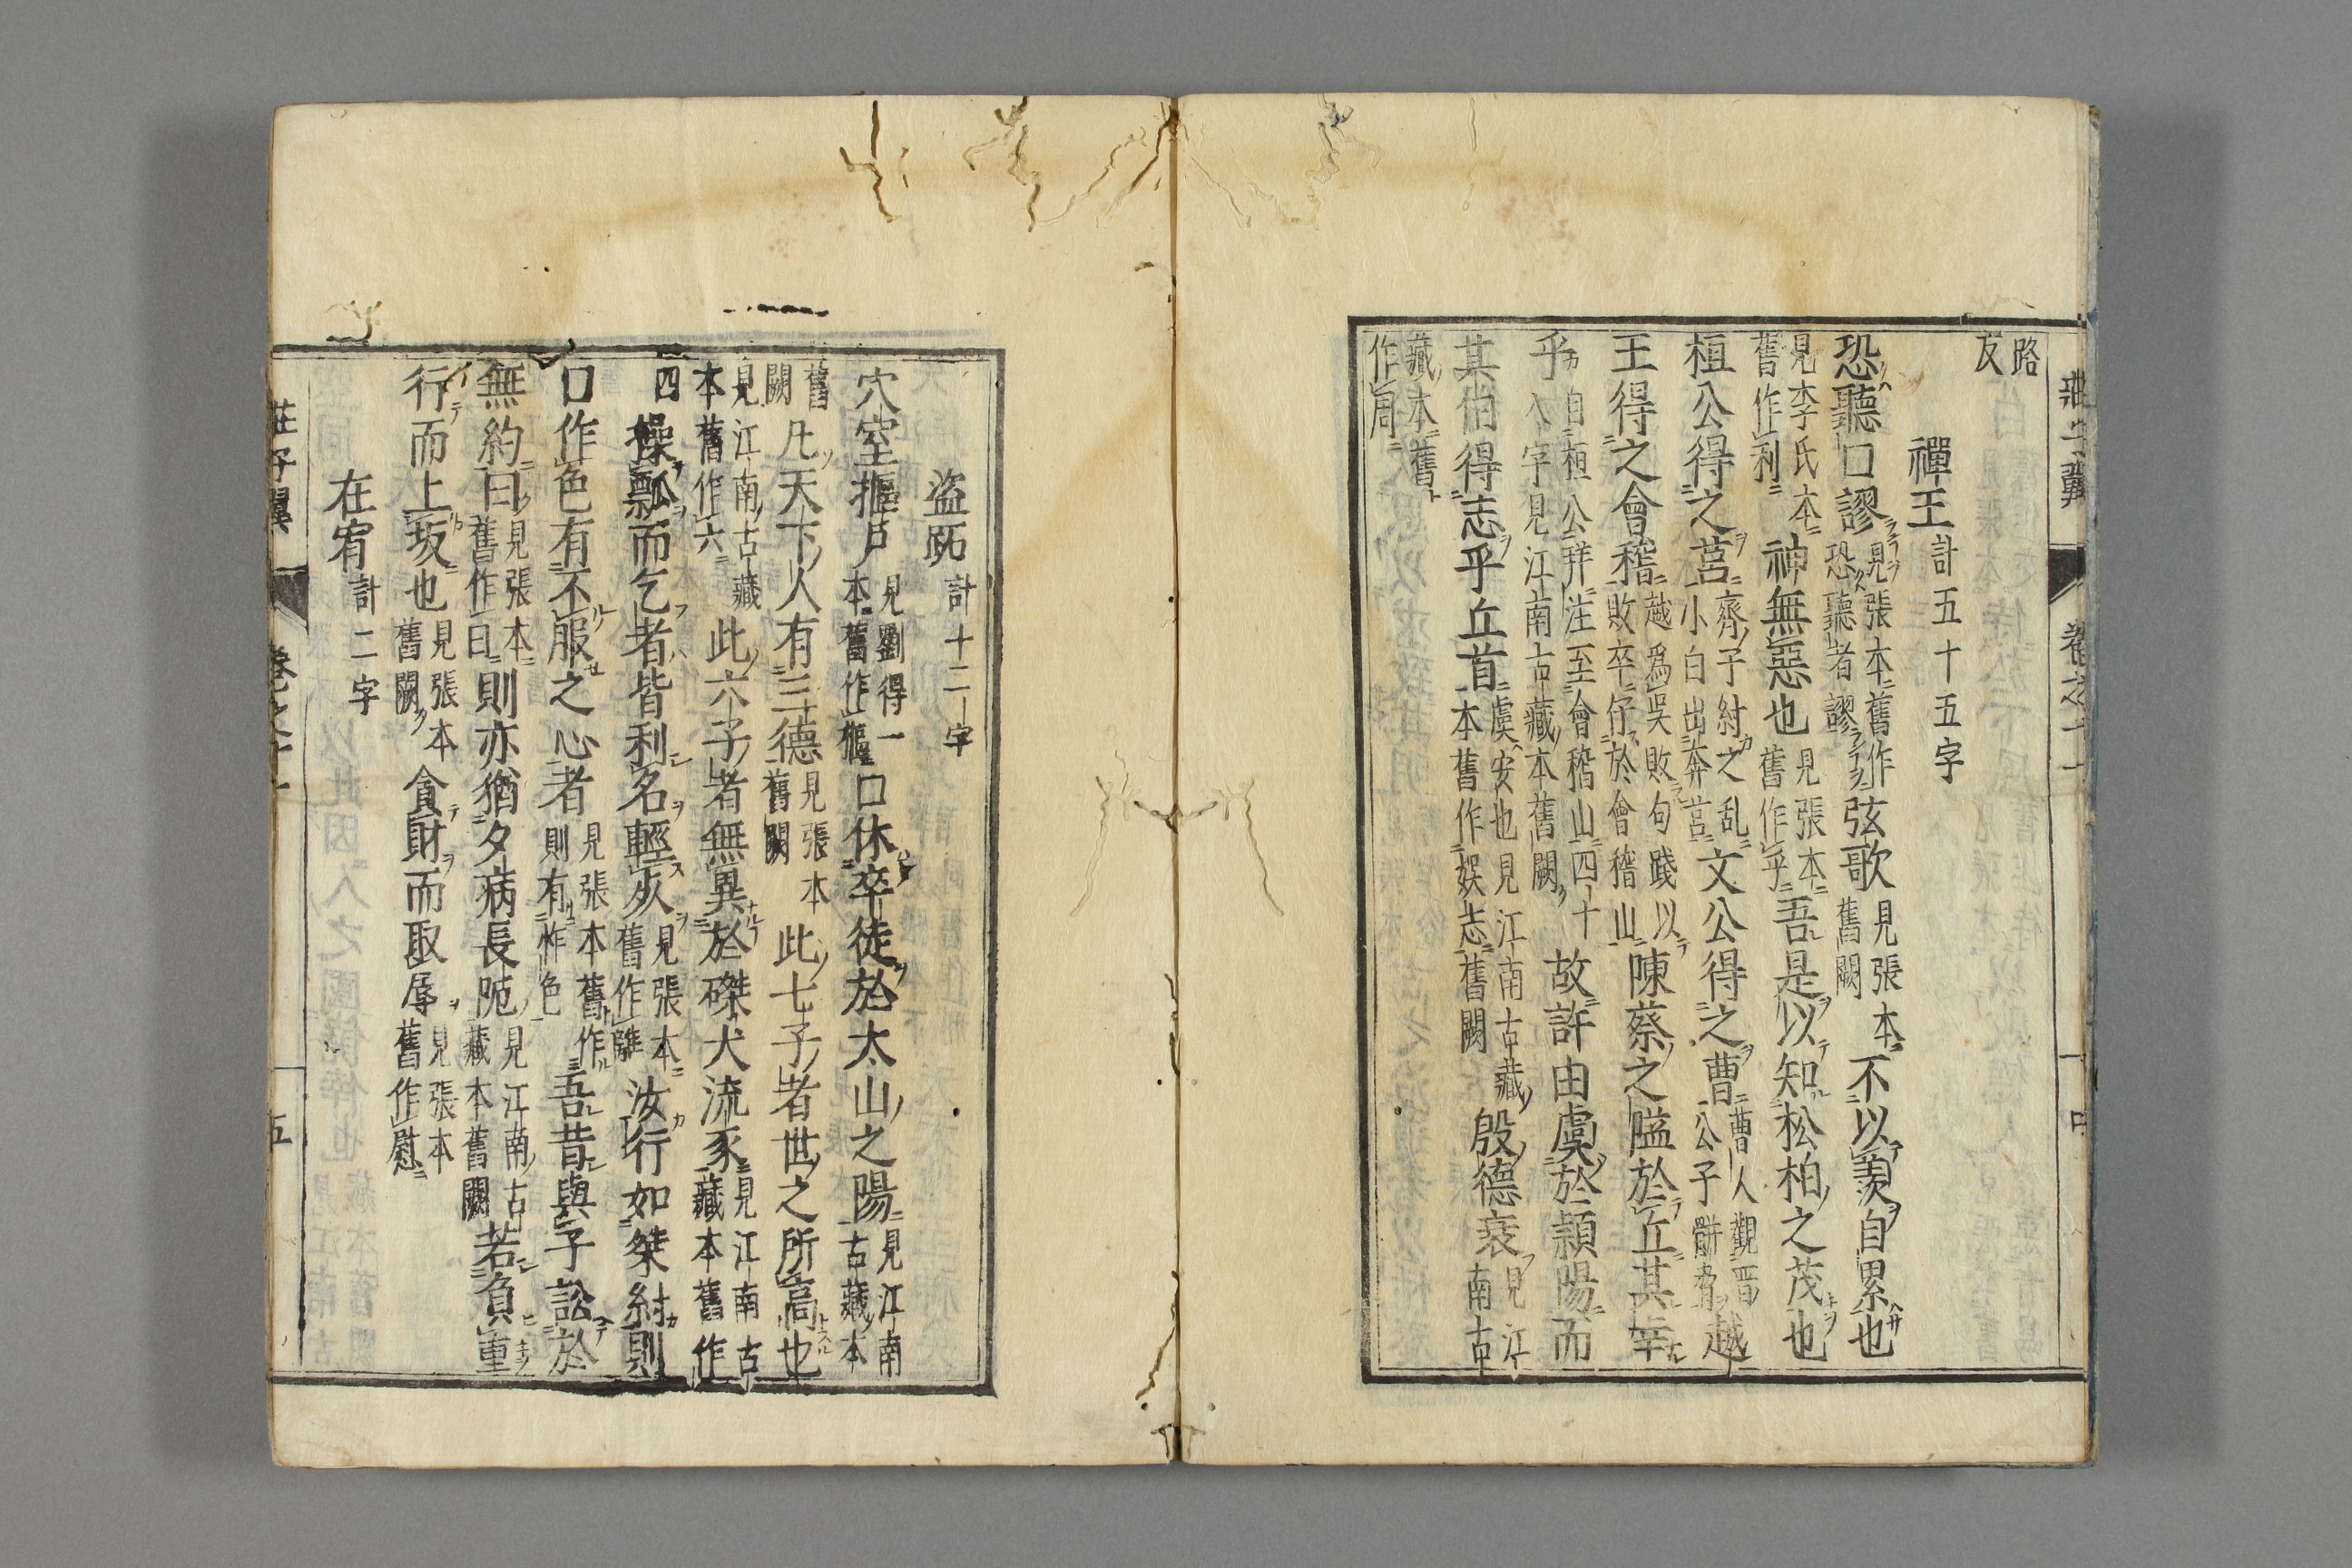 路
反
禪王計五十五字
恐聽口謬見張本舊作恐聽者謬弦歌見張本舊闕不以羨自累也
見李氏本舊作利神無惡也見張本舊作乎吾是以知松柏之茂也
桓公得之莒齊子紂之乱小白出奔莒文公得之曹曹人觀晋公子骿脅越
王得之會稽越為吳敗句踐以敗卒保於會稽山陳蔡之隘於丘其幸
乎自桓公拜注至會稽山四十八字見江南古藏本舊闕故許由虞於穎陽而
其伯得志乎丘首虞安也見江南古藏本舊作娯志舊闕殷德衰見江南古
藏本舊作周
莊子翼 卷之十一
盗跖計十二字
穴室摳戸見劉得一本舊作樞口休卒徒於太山之陽見江南古藏本
舊闕凡天下人有三德見張本舊闕此七子者世之所高也
見江南古藏本舊作六此六子者無異於磔犬流豕見江南古藏本舊作
四操瓢而乞者皆利名輕死見張本舊作離汝行如桀紂則
口作色有不服之心者見張本舊作則有怍色吾昔與子訟於
無約曰見張本舊作日則亦猶夕病長阨見江南古藏本舊闕若負重
行而上坂也見張本舊闕貪財而取辱見張本舊作慰
在宥計二字
莊子翼 卷之十一 五